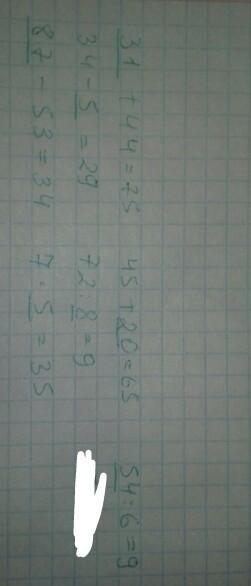 31 + 44 = 75 45 + 20 = 65 54 : 6 = 9
34 - 5 = 29 72 : 8 = 9
87 - 53 = 34 7 · 5 = 35